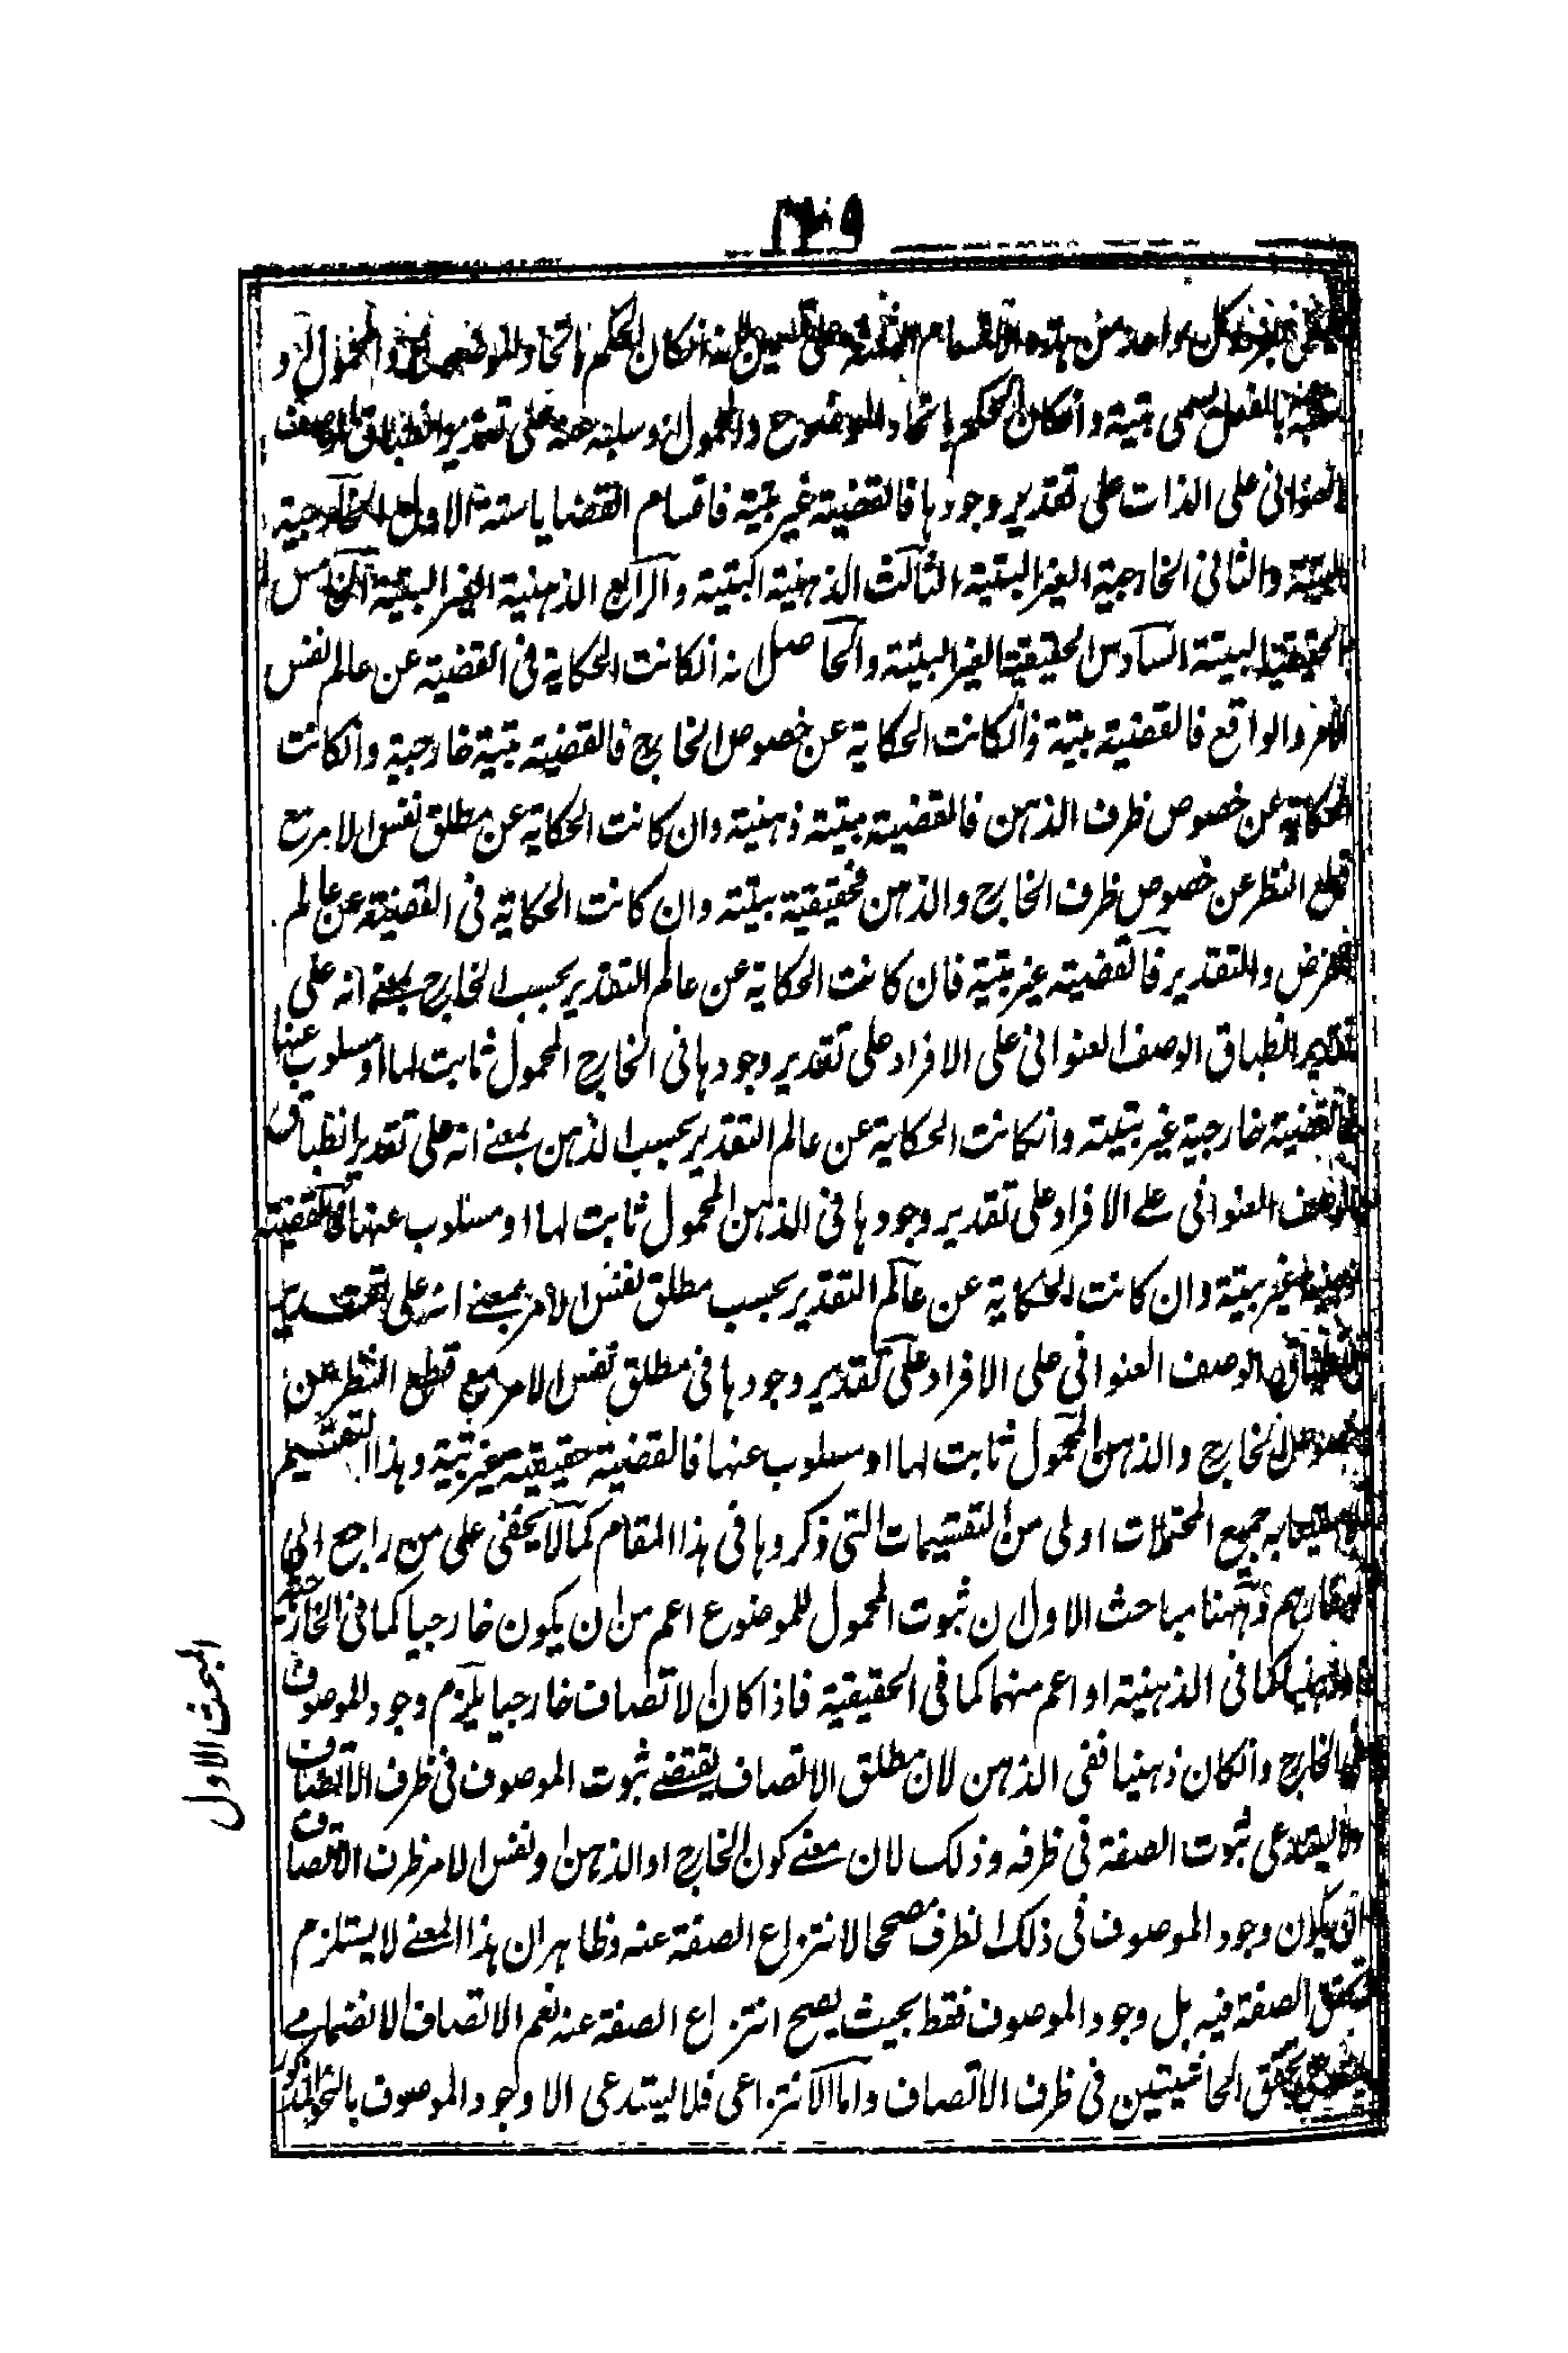 كل واحد من هذه الاقسام على قسمين لانه انكان الحكم باتحاد الموضوع والمحمول او
بالفعل يسمى بتية وانكان الحكم باتحاد الموضوع والمحمول او سلبه عنه على تقدير انطباق الوصف
العنوانى على الذات على تقدير وجودها فالقضية غير بتية فاقسام القضايا ستة الاول الخارجية
البتية والثانى الخارجية الغير البتية الثالث الذهنية البتية والرابع الذهنية الغير البتية الخامس
الحقيقية البتية السادس الحقيقية الغير البتية والحاصل انه انكانت الحكاية فى القضية عن عالم نفس
الامر والواقع فالقضية بتية فانكانت الحكاية عن خصوص الخارج فالقضية بتية خارجية وانكانت
الحكاية عن خصوص ظرف الذهن فالقضية بتية ذهنية وان كانت الحكاية عن مطلق نفس الامر مع
قطع النظر عن خصوص ظرف الخارج والذهن فحقيقية بتية وان كانت الحكاية فى القضية عن عالم
الفرض والتقدير فالقضية غير بتية فان كانت الحكاية عن عالم التقدير بحسب الخارج بمعنى انه على
تقدير انطباق الوصف العنوانى على الافراد على تقدير وجودها فى الخارج المحمول ثابت لها او مسلوب عنها
فالقضية خارجية غير بتية وانكانت الحكاية عن عالم التقدير بحسب الذهن بمعنى انه على تقدير انطباق
الوصف العنوانى على الافراد على تقدير وجودها فى الذهن المحمول ثابت لها او مسلوب عنها فالقضية
ذهنية غير بتية وان كانت الحكاية عن عالم التقدير بحسب مطلق نفس الامر بمعنى انه على تقدير
انطباق الوصف العنوانى على الافراد على تقدير وجودها فى مطلق نفس الامر مع قطع النظر عن
خصوص الخارج والذهن المحمول ثابت لها او مسلوب عنها فالقضية حقيقية غير بتية وهذا التقسيم
لاستيعابه جميع المحتملات اولى من التقسيمات التى ذكروها فى هذا المقام كما لا يخفى على من راجع الى
وههنا مباحث الاول ان ثبوت المحمول للموضوع اعم من ان يكون خارجيا كما فى الخارجية
او ذهنيا كما فى الذهنية او اعم منهما كما فى الحقيقية فاذا كان الاتصاف خارجيا يلزم وجود الموصوف
فى الخارج وانكان ذهنيا ففى الذهن لان مطلق الاتصاف يقتضى ثبوت الموصوف فى ظرف الاتصاف
ولا يستدعى ثبوت الصفة فى ظرفه وذلك لان معنى كون الخارج او الذهن او نفس الامر ظرف الاتصاف
ان يكون وجود الموصوف فى ذلك الظرف مصححا لانتزاع الصفة عنه وظاهر ان هذا المعنى لا يستلزم
تحقق الصفة فيه بل وجود الموصوف فقط بحيث يصح انتزاع الصفة عنه نعم الاتصاف الانضمامى
تحقق الحاشيتين فى ظرف الاتصاف واما الانتزاعى فلا يستدعى الا وجود الموصوف بالنحو المذكور
المبحث الاول